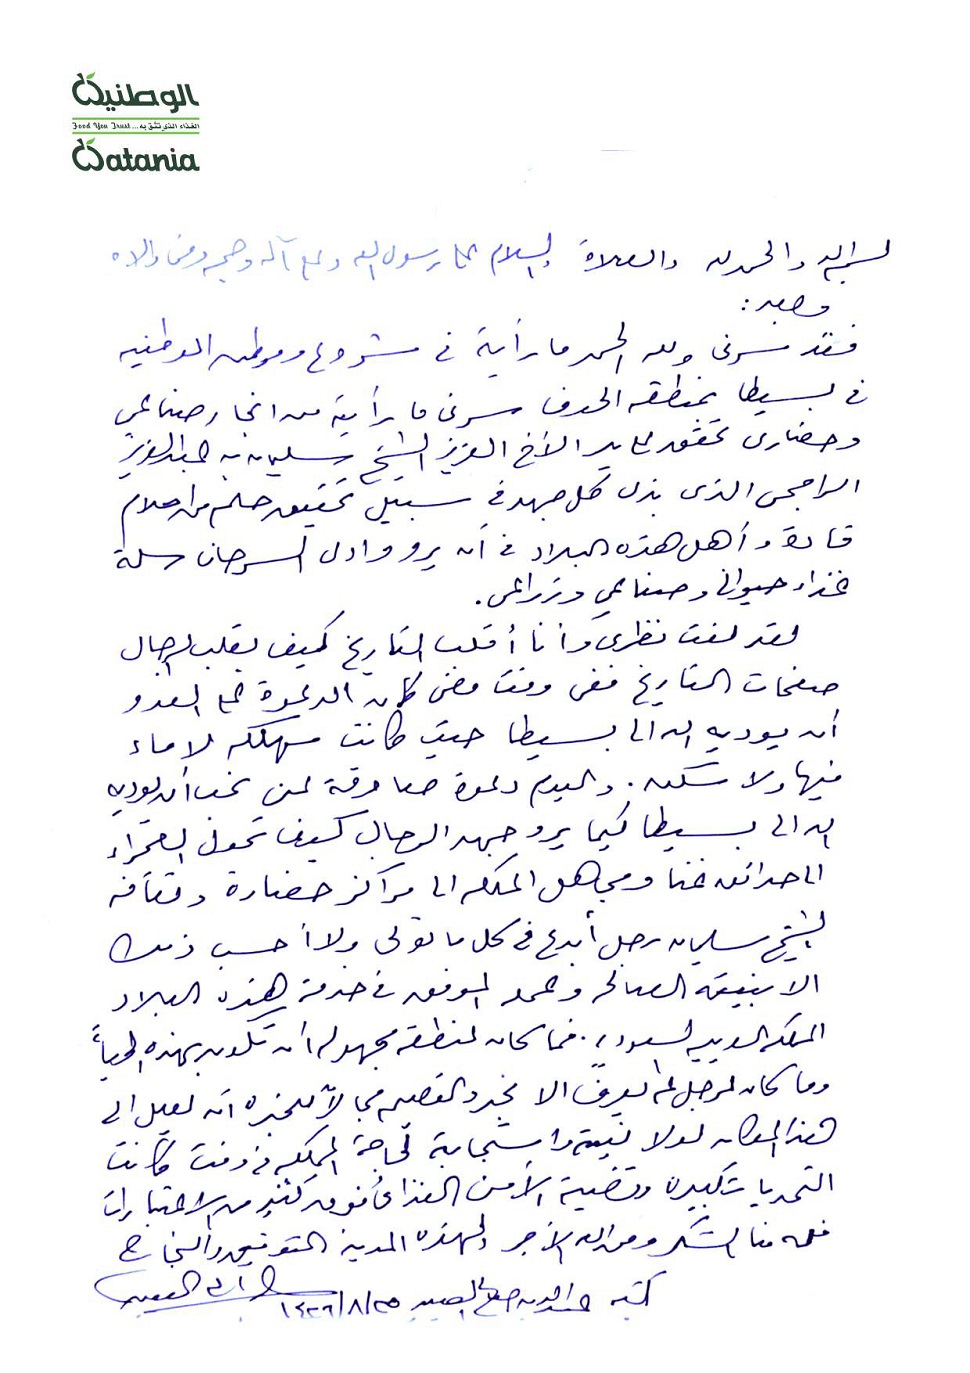 الوطنية
الغذاء الذي تثق به... Food You Trust
Watania
بسم الله والحمد لله والصلاة والسلام على رسول الله وعلى آله وصحبه ومن والاه
وبعد:
فقد سرني ولله الحمد ما رأيته في مشروع وموطن الوطنية
في بسيطا بمنطقة الجوف سرني ما رأيته من انجاز صناعي
وحضاري تحقق على يد الأخ العزيز الشيخ سليمان بن عبدالعزيز
الراجحي الذي بذل كل جهد في سبيل تحقيق حلم من احلام
قادة وأهل هذه البلاد في أن يروا وادي السرحان سلة
غذاء حيواني وصناعي وزراعي.
لقد لفت نظري وأنا أقلب التاريخ كيف يقلب الرجال
صفحات التاريخ ففي وقت مضى كان الدعوة على العدو
أن يوديه الله الى بسيطا حيث كانت مهلكه لا ماء
فيها ولا سكن. واليوم دعوة صادقة لمن تحب أن يوديه
الله الى بسيطا كيما يرى جهد الرجال كيف تحول الصحراء
الى حدائق غنا ومجاهل المملكه الى مراكز حضارة وثقافه
الشيخ سليمان رجل أبدع في كل ما تولى ولا أحسب ذلك
الا بنيته الصالحه وعمله الموفق في خدمة هذه البلاد
المملكه العربيه السعوديه. فما كان لمنطقه مجهوله أن تكون بهذه الحياة
وما كان لرجل لم يعرف الا نجد والقصيم مجالاً أن يصل الى
هذا المكان لولا نيته واستجابة لحاجة المملكه في وقت كانت
التحديات كبيره وقضية الأمن الغذائي فوق كثير من الاعتبارات
فله منا الشكر ومن الله الأجر ولهذه المدينة التوفيق والنجاح
كتبه عبدالله صالح العبيد ١٤٣٦/٨/٢٥